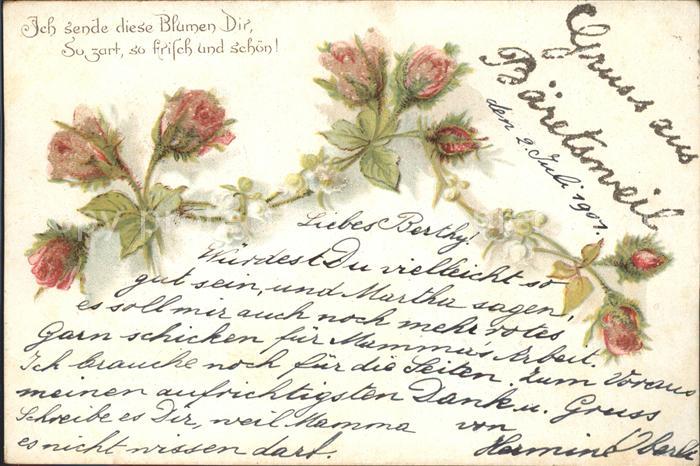 Ich sende diese Blumen Dir,
So zart, so frisch und schön!
Gruss aus
Bäretsweil
den 2. Juli 1901.
Liebes Berthy!
Würdest Du vielleicht so
gut sein, und Martha sagen,
es soll mir auch noch mehr rotes
Garn schicken für Mamma's Arbeit.
Ich brauche noch für die Seiten. Zum Voraus
meinen aufrichtigsten Dank u. Gruss
Schreibe es Dir, weil Mamma von
es nicht wissen darf. Hermine